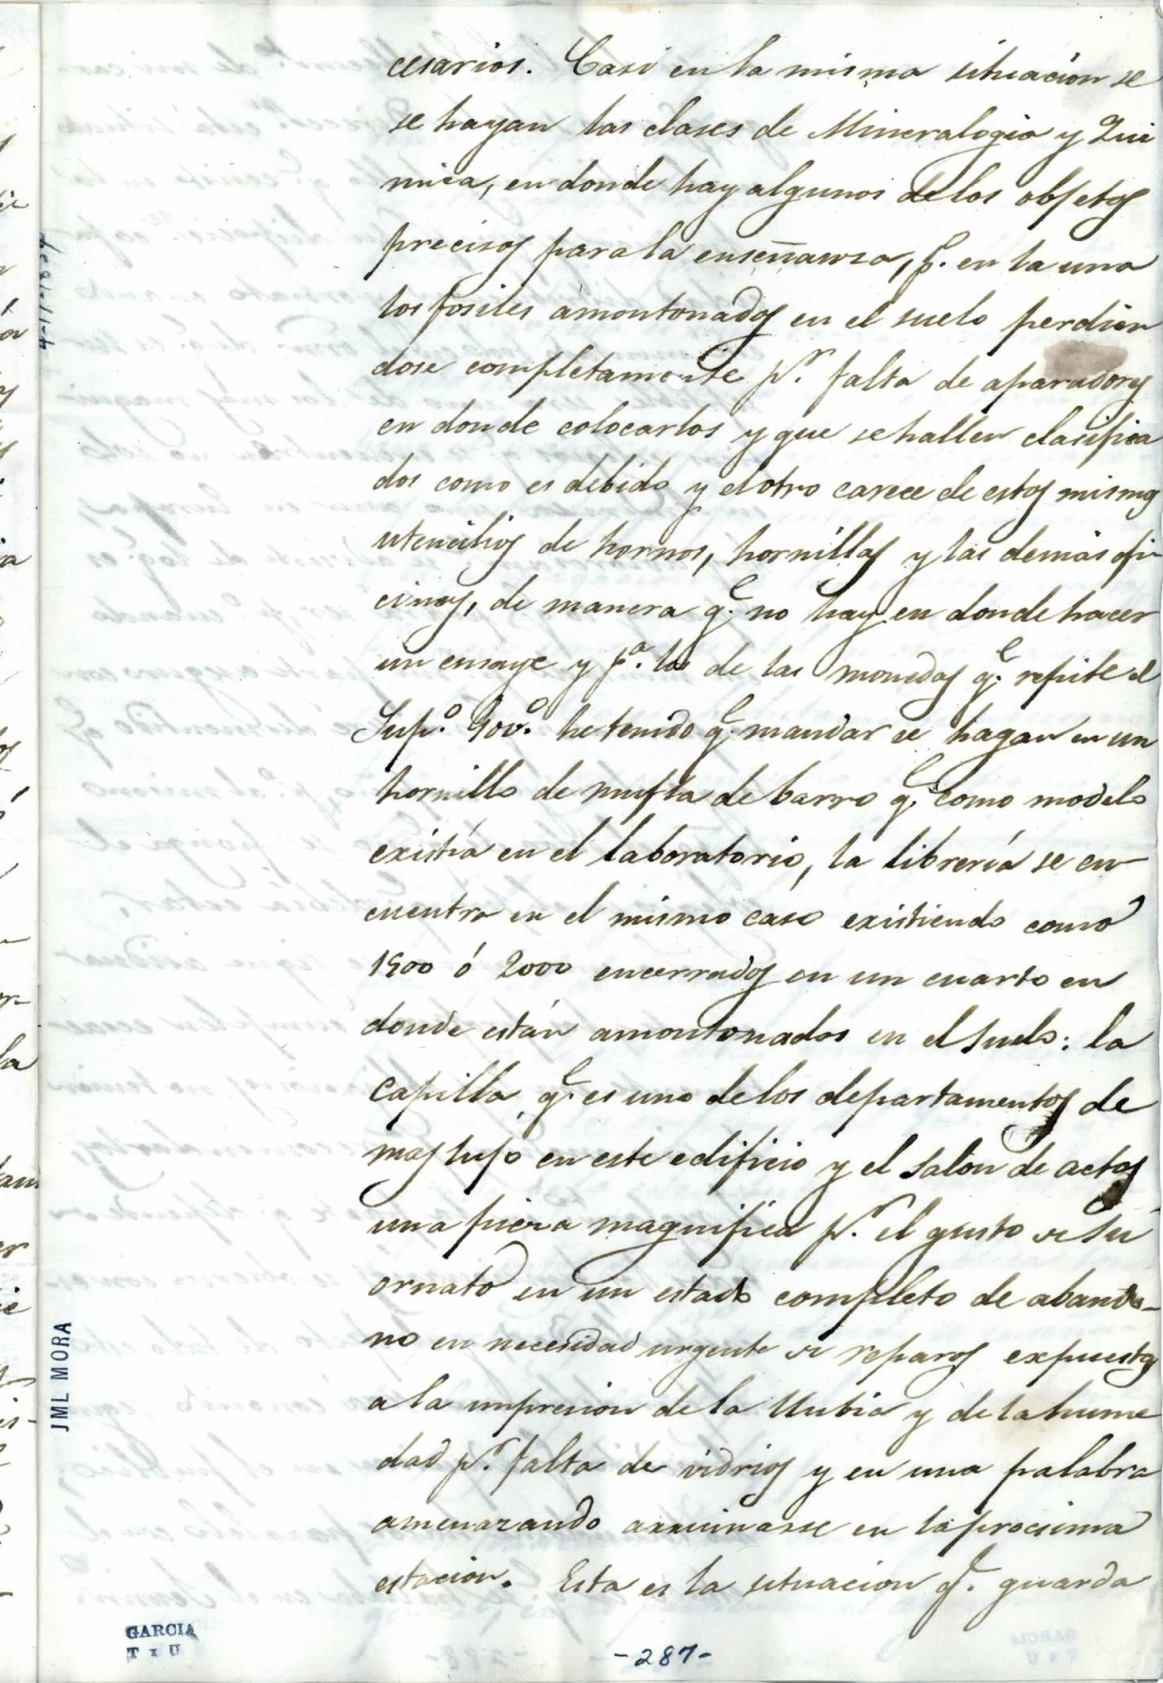 cesarios. Casi en la misma situación se
se hayan las clases de Mineralogia y Qui
mica, en donde hay algunos de los objetos
precisos para la enseñansa, p.^ en la una
los fosiles amontonados en el suelo perdien
dose completamente p.r falta de aparadores
en donde colocarlos y que se hallen clasifica
dos como es debido y el otro carece de estos mismos
utencilios de hornos, hornillas y las demás ofi
cinas, de manera q.e no hay en donde hacer
un ensaye y p.a los de las monedas q.e repite el
Sup.o Gov.o he tenido q.e mandar se hagan en un
hornillo de mufla de barro q.e como modelo
existía en el laboratorio, la librería se en
cuentra en el mismo caso existiendo como
1900 ó 2000 encerrados en un cuarto en
donde están amontonados en el suelo: la
capilla q.e es uno de los departamentos de
mas lujo en este edificio y el salon de actos
una pieza magnifica p.r el gusto de su
ornato en un estado completo de abando-
no en necesidad urgente de reparos expuestos
a la impresion de la lluvia y de la hume
dad p.r falta de vidrios y en una palabra
amenazando arruinarse en la procsima
estacion. Esta es la situacion q.e guarda
JML MORA
GARCIA
T x U
-287-